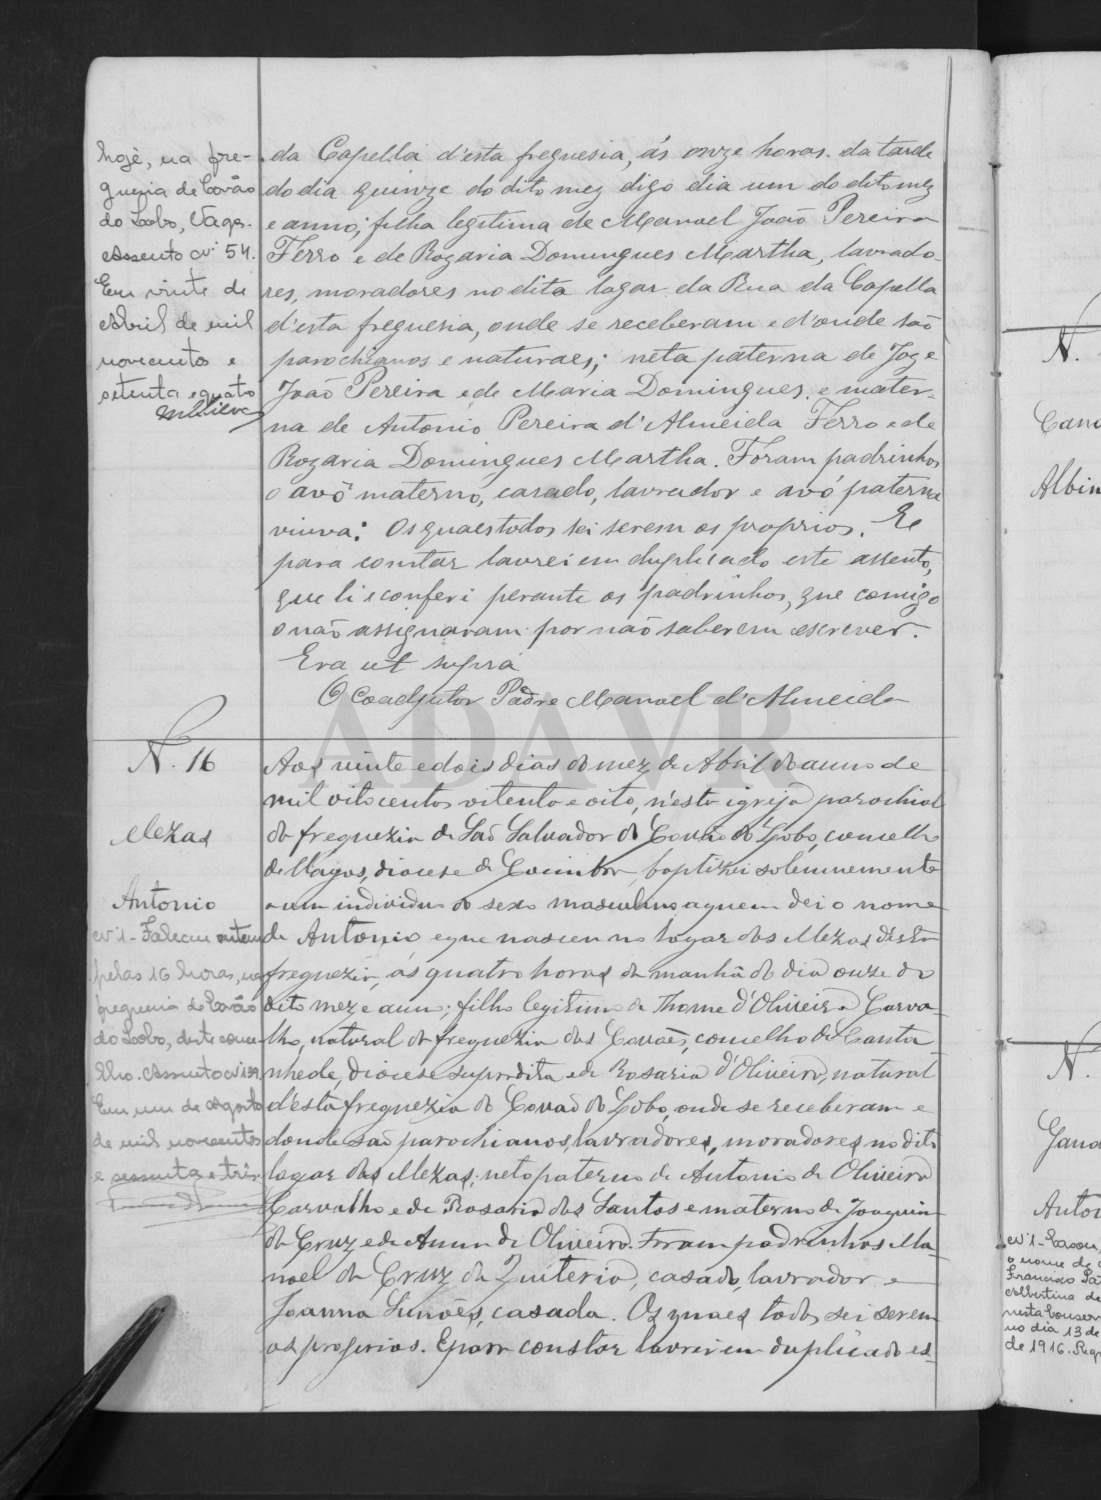 hoje, na fre-
guesia de Covão
do Lobo, Vagos.
Assento nº 54.
Em vinte de
Abril de mil
novecentos e
setenta e quatro
da Capella d'esta freguesia, ás onze horas da tarde
do dia quinze do dito mez digo dia um do dito mez
e anno; filha legitima de Manoel João Pereira
Ferro e de Rozaria Domingues Martha, lavrado-
res, moradores no dita lugar da Rua da Capella
d'esta freguesia, onde se receberam e d'onde são
parochianos e naturaes; neta paterna de Joze
João Pereira e de Maria Domingues, e mater-
na de Antonio Pereira d'Almeida Ferro e de
Rozaria Domingues Martha. Foram padrinhos
o avô materno, casado, lavrador e avó paterna
viuva: Os quaes todos sei serem os proprios. E
para constar lavrei em duplicado este assento,
que li e conferi perante os padrinhos, que comigo
o não assignaram por não saberem escrever.
Era ut supra
O Coadjutor Padre Manoel d'Almeida
ADAVR
N. 16
Mezas
Antonio
Nº 1 - Faleceu ontem
pelas 16 horas, na
freguesia de Covão
do Lobo, deste conce-
lho. Assento nº 139
Em um de Agosto
de mil novecentos
e sessenta e três
Aos vinte e dois dias do mez de Abril do anno de
mil oitocentos oitenta e oito, n'esta igreja parochial
da freguezia de São Salvador do Covão do Lobo, concelho
de Vagos, diocese de Coimbra, baptizei solemnemente
a um individuo do sexo masculino a quem dei o nome
de Antonio e que nasceu no logar das Mezas d'esta
freguezia, ás quatro horas da manhã do dia onze do
dito mez e anno; filho legitimo de Thome d'Oliveira Carva-
lho, natural da freguezia das Covões, concelho de Canta-
nhede, diocese supradita e de Rosaria d'Oliveira, natural
d'esta freguezia do Covão do Lobo, onde se receberam e
donde são parochianos, lavradores, moradores no dito
lugar das Mezas; neto paterno de Antonio de Oliveira
Carvalho e de Rosaria dos Santos e materno de Joaquim
da Cruz e de Anna de Oliveira. Foram padrinhos Ma-
noel da Cruz da Quiteria, casado, lavrador e
Joanna Simões, casada. Os quaes todos sei serem
os proprios. E para constar lavrei em duplicado es-
N.
Cand
Albin
N.
Gand
Anto
Nº 1 - Casou,
o nome de
Francisco Pa
Albertina de
nesta Conser
no dia 13 de
de 1916. Reg